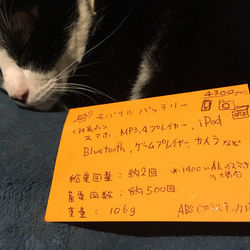 4300円
モバイルバッテリー
<対応>
スマホ、MP3,4プレイヤー、iPod
Bluetooth、ゲームプレイヤー、カメラなど
給電回数:約2回 ※1400mAhのスマホ
の場合
蓄電回数:約500回
重量:106g ABS(プラスチック)